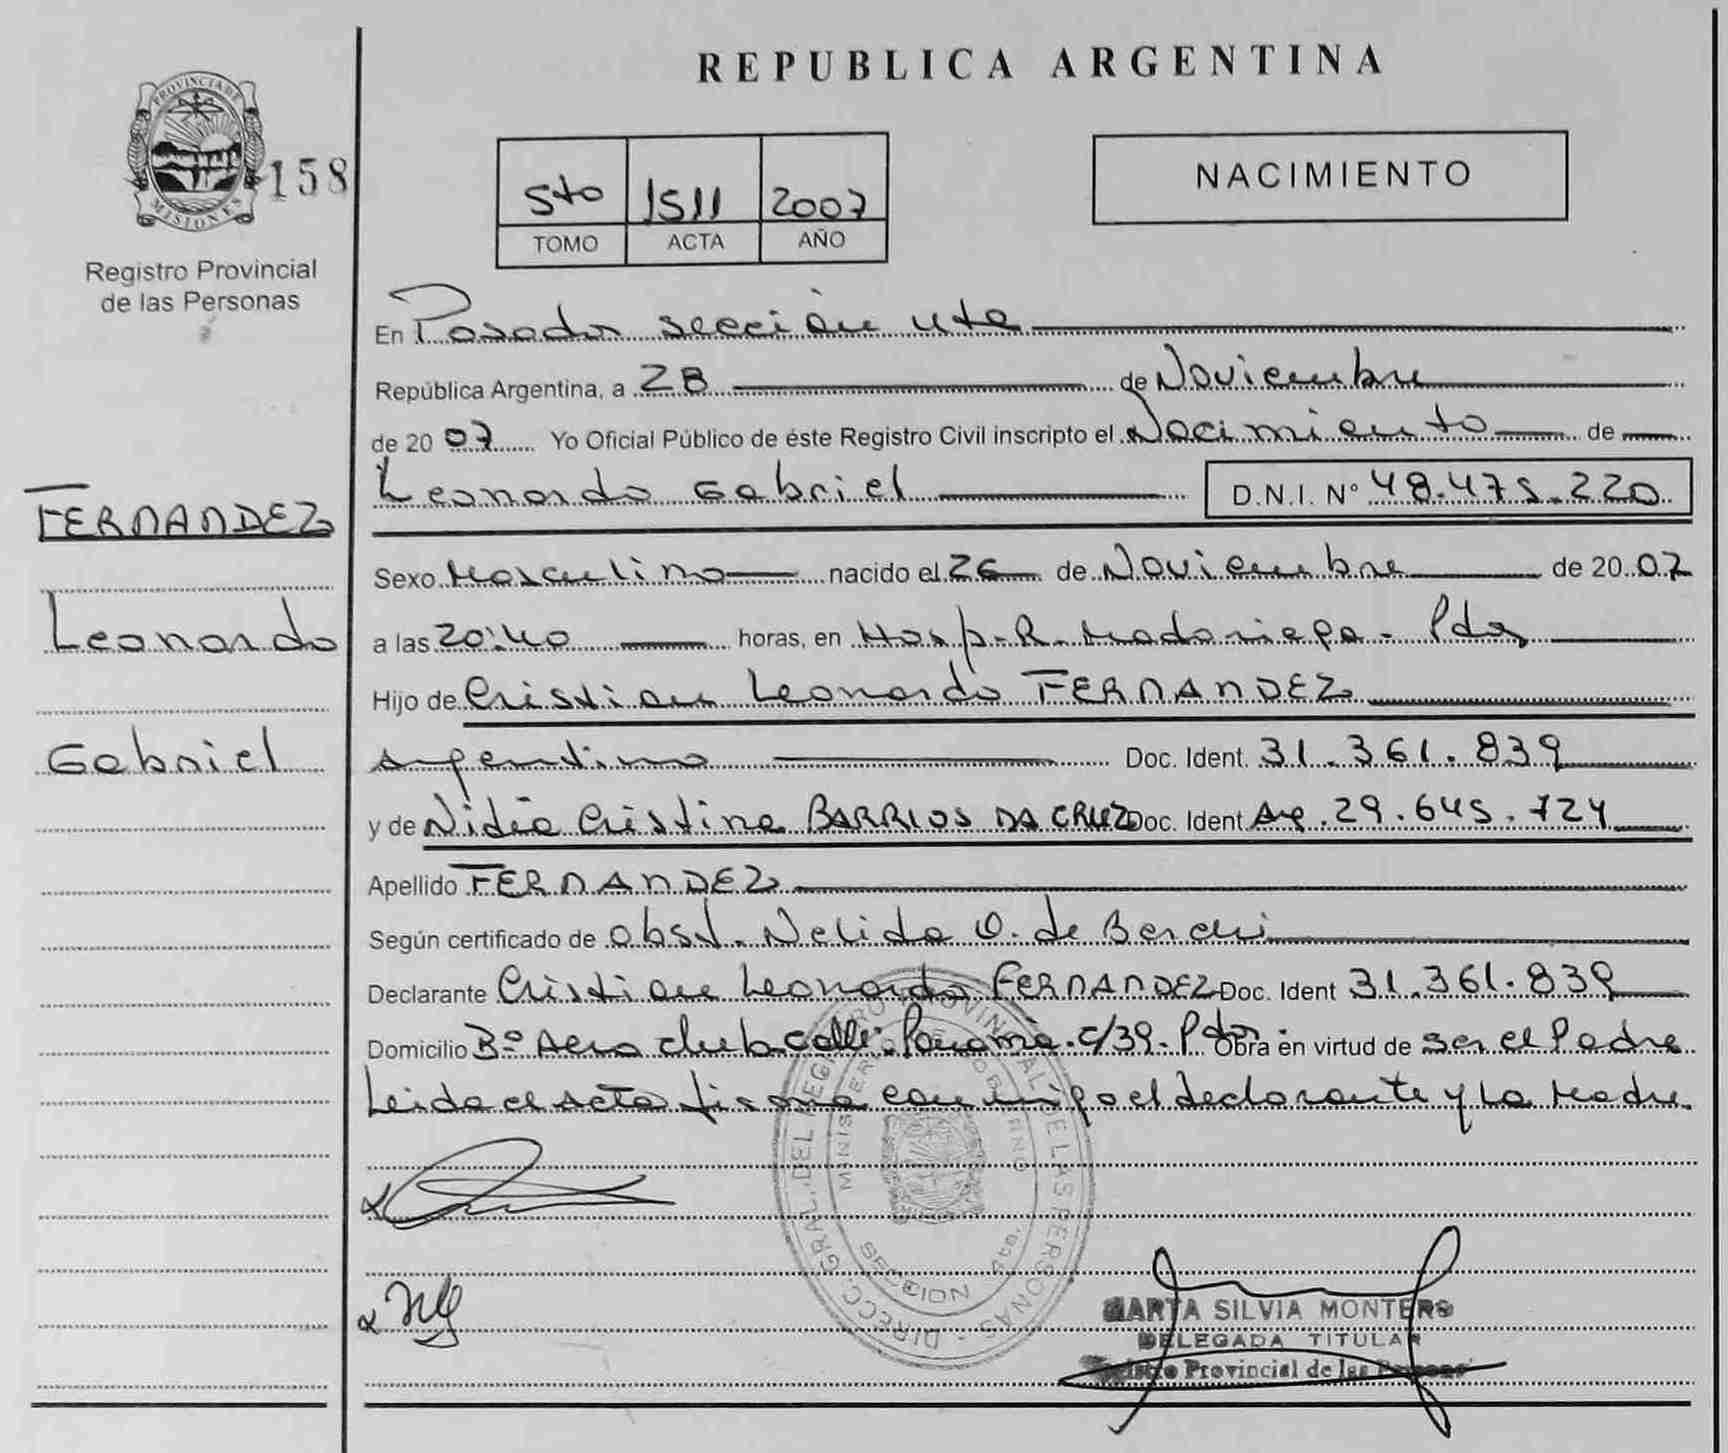 REPUBLICA ARGENTINA
PROVINCIA DE
MISIONES
158
Registro Provincial
de las Personas
5to 1511 2007
TOMO ACTA AÑO
NACIMIENTO
En Posadas sección 4ta
República Argentina, a 28 de Noviembre
de 2007 Yo Oficial Público de éste Registro Civil inscripto el Nacimiento de
Leonardo Gabriel D.N.I. Nº 48.475.220
FERNANDEZ
Leonardo
Gabriel
Sexo Masculino nacido el 26 de Noviembre de 2007
a las 20:40 horas, en Hosp. R. Madariaga - Pdas
Hijo de Cristian Leonardo FERNANDEZ
argentino Doc. Ident. 31.361.839
y de Nidia Cristina BARRIOS DA CRUZ Doc. Ident Arg. 29.645.724
Apellido FERNANDEZ
Según certificado de Obst. Nelida O. de Berchi
Declarante Cristian Leonardo FERNANDEZ Doc. Ident 31.361.839
Domicilio Bº Aero club calle Panamá c/39. Pdas. Obra en virtud de ser el Padre
Leida el Acta firma conmigo el declarante y La Madre
DIRECC. GRAL. DEL REGISTRO PROVINCIAL DE LAS PERSONAS
SECCION 4ta.
MARTA SILVIA MONTERO
DELEGADA TITULAR
Registro Provincial de las Personas